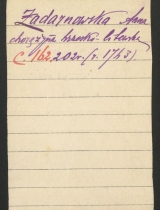 Zadarnowska Anna
chorążyna brzesko-litewska
C. 162.202v. (r. 1743)